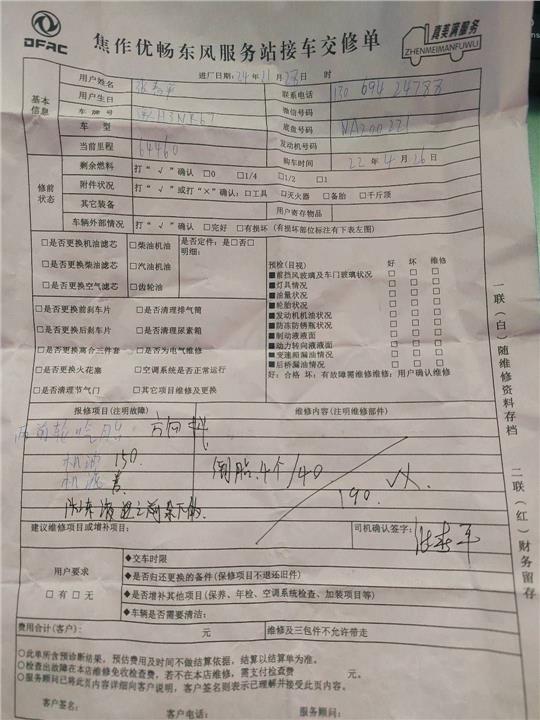 DFAC
焦作优畅东风服务站接车交修单
真美满服务
ZHENMEIMANFUWU
进厂日期: 24 年 11 月 28 日 时
基本信息
用户姓名
联系电话 130 694 24788
用户生日
微信号码
车牌号
底盘号码 NA200221
车型
发动机号码
当前里程 64460
购车时间 22 年 4 月 26 日
修前状态
剩余燃料 打“√”确认 □0 □1/4 □1/2 □1
附件状况 打“√”或打“×”确认:□工具 □灭火器 □备胎 □千斤顶
其它装备 用户寄存物品
车辆外部情况 打“√”确认 □完好 □有损坏 (有损坏部位标注有下表左图)
□是否更换机油滤芯 □柴油机油 是否定件: 是□否□
明细:
□是否更换柴油滤芯 □汽油机油
□是否更换空气滤芯 □齿轮油
预检(目视) 好 坏 维修
■前挡风玻璃及车门玻璃状况 □ □ □
■灯具情况 □ □ □
■油量状况 □ □ □
■轮胎状况 □ □ □
■发动机机油状况 □ □ □
■防冻防锈瓶状况 □ □ □
■制动液液面 □ □ □
■动力转向液液面 □ □ □
■变速厢漏油情况 □ □ □
■后桥漏油情况 □ □ □
好: 合格 坏: 有故障需维修维修: 用户确认维修
□是否更换前刹车片 □是否清理排气筒
□是否更换后刹车片 □是否清理尿素箱
□是否更换离合三件套 □是否为电气维修
□是否更换火花塞 □空调系统是否正常运行
□是否清理节气门 □其它项目维修及更换
报修项目(注明故障) 维修内容(注明维修部件)
两前轮吃胎 方向
机油 150.
机滤
倒胎.4个/40
190
建议维修项目或增补项目:
司机确认签字:
用户要求
□有 □无
◆交车时限
◆是否归还更换的备件(保修项目不退还旧件)
◆是否增补其他项目(保养、年检、空调系统检查、加装项目等)
◆车辆是否需要清洁:
费用合计(客户): 元 维修及三包件不允许带走
○此单所含预诊断结果,预估费用及时间不做结算依据,结算以结算单为准。
○检查出故障在本店维修免收检查费,若不在本店维修,需支付检查费 元。
○服务顾问已将此页内容详细向客户说明,客户签名则表示已理解并接受此页内容。
客户签名: 客户电话: 服务顾问:
一联(白)随维修资料存档 二联(红)财务留存